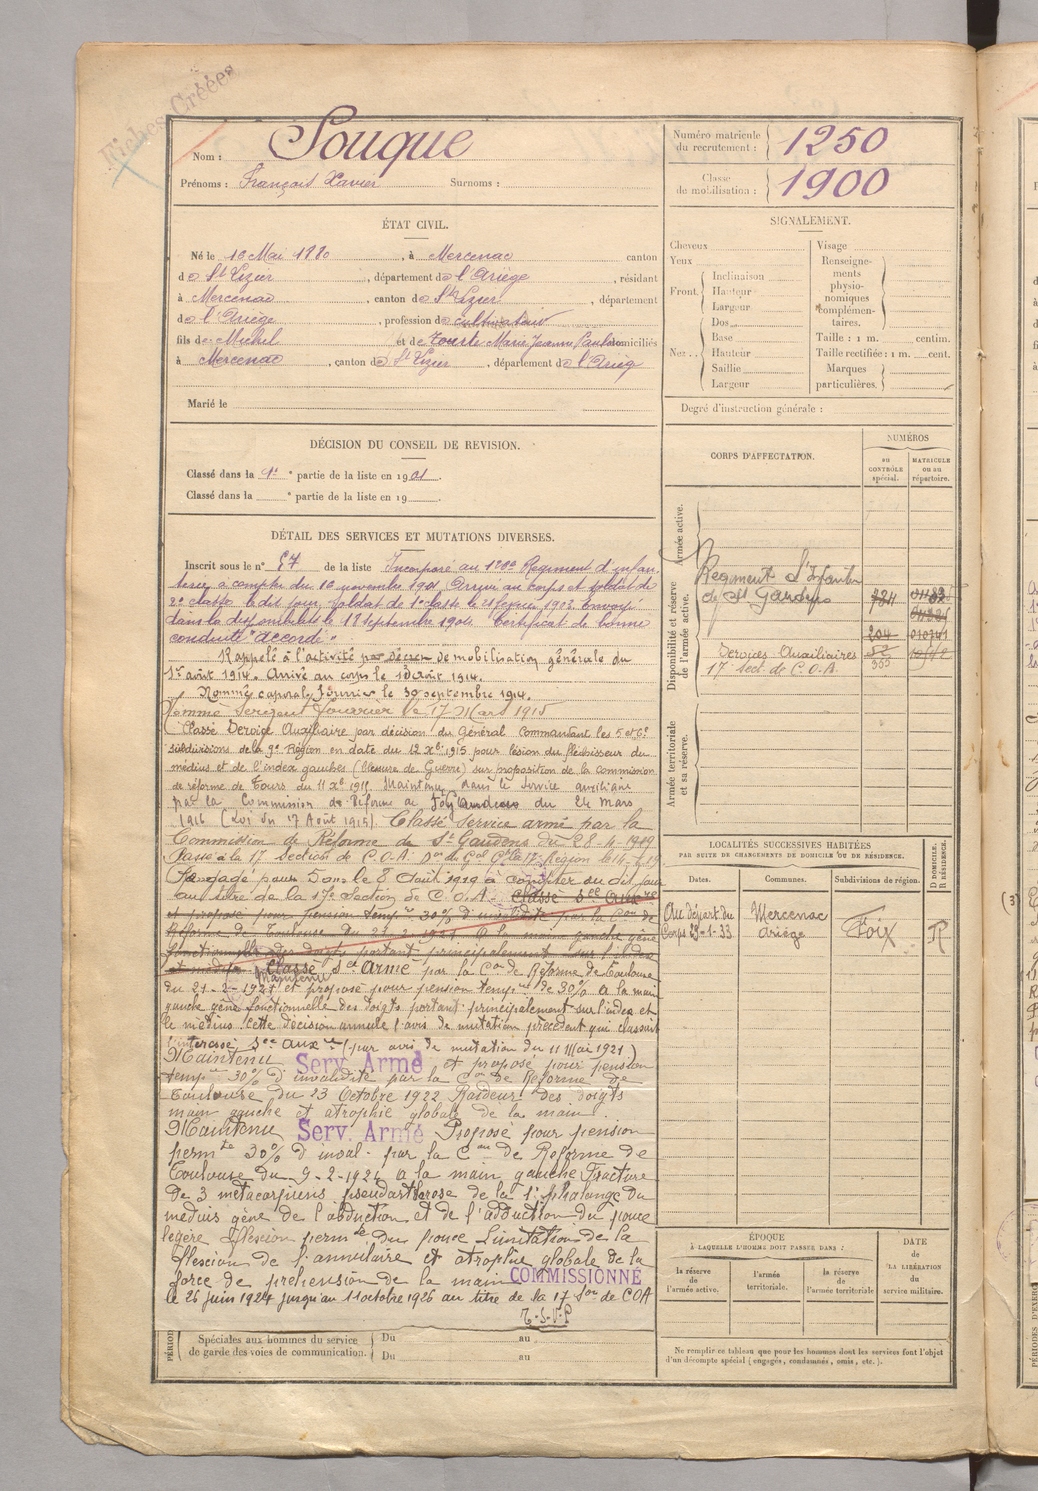 Fiches Créées
Nom : Souque
Prénoms : François Xavier Surnoms :
Numéro matricule du recrutement : 1250
Classe de mobilisation : 1900
ÉTAT CIVIL.
Né le 10 Mai 1880, à Mercenac canton
de St Lizier, département de l'Ariège, résidant
à Mercenac, canton de St Lizier, département
de l'Ariège, profession de cultivateur
fils de Michel et de Tourte Marie Jeanne Paule domiciliés
à Mercenac, canton de St Lizier, département de l'Arièg
Marié le
SIGNALEMENT.
Cheveux
Yeux
Front. Inclinaison
Hauteur
Largeur
Nez. Dos
Base
Hauteur
Saillie
Largeur
Visage
Renseignements physionomiques complémentaires.
Taille : 1 m. centim.
Taille rectifiée : 1 m. cent.
Marques particulières.
Degré d'instruction générale :
DÉCISION DU CONSEIL DE REVISION.
Classé dans la 1e partie de la liste en 1901.
Classé dans la e partie de la liste en 19
DÉTAIL DES SERVICES ET MUTATIONS DIVERSES.
Inscrit sous le n° 57 de la liste Incorporé au 120e Régiment d'infan-
terie à compter du 16 novembre 1901 Arrivé au corps et soldat de
2e classe le dit jour, soldat de 1e classe le 21 février 1903 Envoyé
dans la disponibilité le 18 septembre 1904 Certificat de bonne
conduite "accordé"
Rappelé à l'activité par Décret de mobilisation générale du
1er août 1914. Arrivé au corps le août 1914.
Nommé caporal fourrier le 30 septembre 1914.
Nommé Sergent fourrier le 17 Mars 1915
Classé Service Auxiliaire par décision du Général Commandant les 5 et 6e
subdivisions de la 9e Région en date du 12 Xbre 1915 pour lésion du fléchisseur du
médius et de l'index gauches (Blessure de Guerre) sur proposition de la commission
de réforme de Tours du 11 Xbre 1915. Maintenu dans le service auxiliaire
par la Commission de Réforme de St Gaudens du 24 mars
1916 (Loi du 17 Août 1915). Classé Service armé par la
Commission de Réforme de St Gaudens du 28-4-1919
Passé à la 17 Section de C.O.A. Don du Gal Ct la 17e Région le 14-7-19
Rengagé pour 5 ans le 8 Août 1919 à compter du dit jour
au titre de la 17e Section de C.O.A. Classé Sce Auxre
et proposé pour pension tempre 30% d'invalidité par la Con de
Réforme de Toulouse du 21-2-1921 A la main gauche gêne
fonctionnelle des doigts portant principalement sur l'index
et médius Classé Maintenu Sce Armé par la Con de Réforme de Toulouse
du 21-2-1921 et proposé pour pension tempre de 30% a la main
gauche gêne fonctionnelle des doigts portant principalement sur l'index et
le médius. Cette décision annule l'avis de mutation précédent qui classait
l'intéressé Sce Auxre (par avis de mutation du 11 Mai 1921)
Maintenu Serv. Armé et proposé pour pension
tempre 30% d'invalidité par la Con de Réforme de
Toulouse du 23 Octobre 1922 Raideur des doigts
main gauche et atrophie globale de la main.
Maintenu Serv. Armé Proposé pour pension
permte 30% d'inval. par la Con de Réforme de
Toulouse du 9-2-1924 a la main gauche Fracture
de 3 métacarpiens pseudarthrose de la 1e phalange du
médius gêne de l'abduction et de l'adduction du pouce
légère flexion permte du pouce Limitation de la
flexion de l'annulaire et atrophie globale de la
force de préhension de la main COMMISSIONNÉ
le 26 juin 1924 jusqu'au 11 octobre 1926 au titre de la 17 Son de COA
T.S.V.P
CORPS D'AFFECTATION.
NUMÉROS
AU CONTRÔLE spécial.
MATRICULE ou au répertoire.
Armée active.
Disponibilité et réserve de l'armée active.
Régiment d'Infanterie
de St Gaudens 784
204
Services Auxiliaires
17e sect. de C.O.A. 355
Armée territoriale et sa réserve.
LOCALITÉS SUCCESSIVES HABITÉES
PAR SUITE DE CHANGEMENTS DE DOMICILE OU DE RÉSIDENCE.
Dates. Communes. Subdivisions de région. D DOMICILE. R RÉSIDENCE.
Au départ du Corps 29-1-33 Mercenac Ariège Foix R
ÉPOQUE
À LAQUELLE L'HOMME DOIT PASSER DANS :
la réserve de l'armée active. l'armée territoriale. la réserve de l'armée territoriale
DATE de LA LIBÉRATION du service militaire.
Spéciales aux hommes du service de garde des voies de communication.
Du au
Du au
Ne remplir ce tableau que pour les hommes dont les services font l'objet
d'un décompte spécial (engagés, condamnés, omis, etc.).